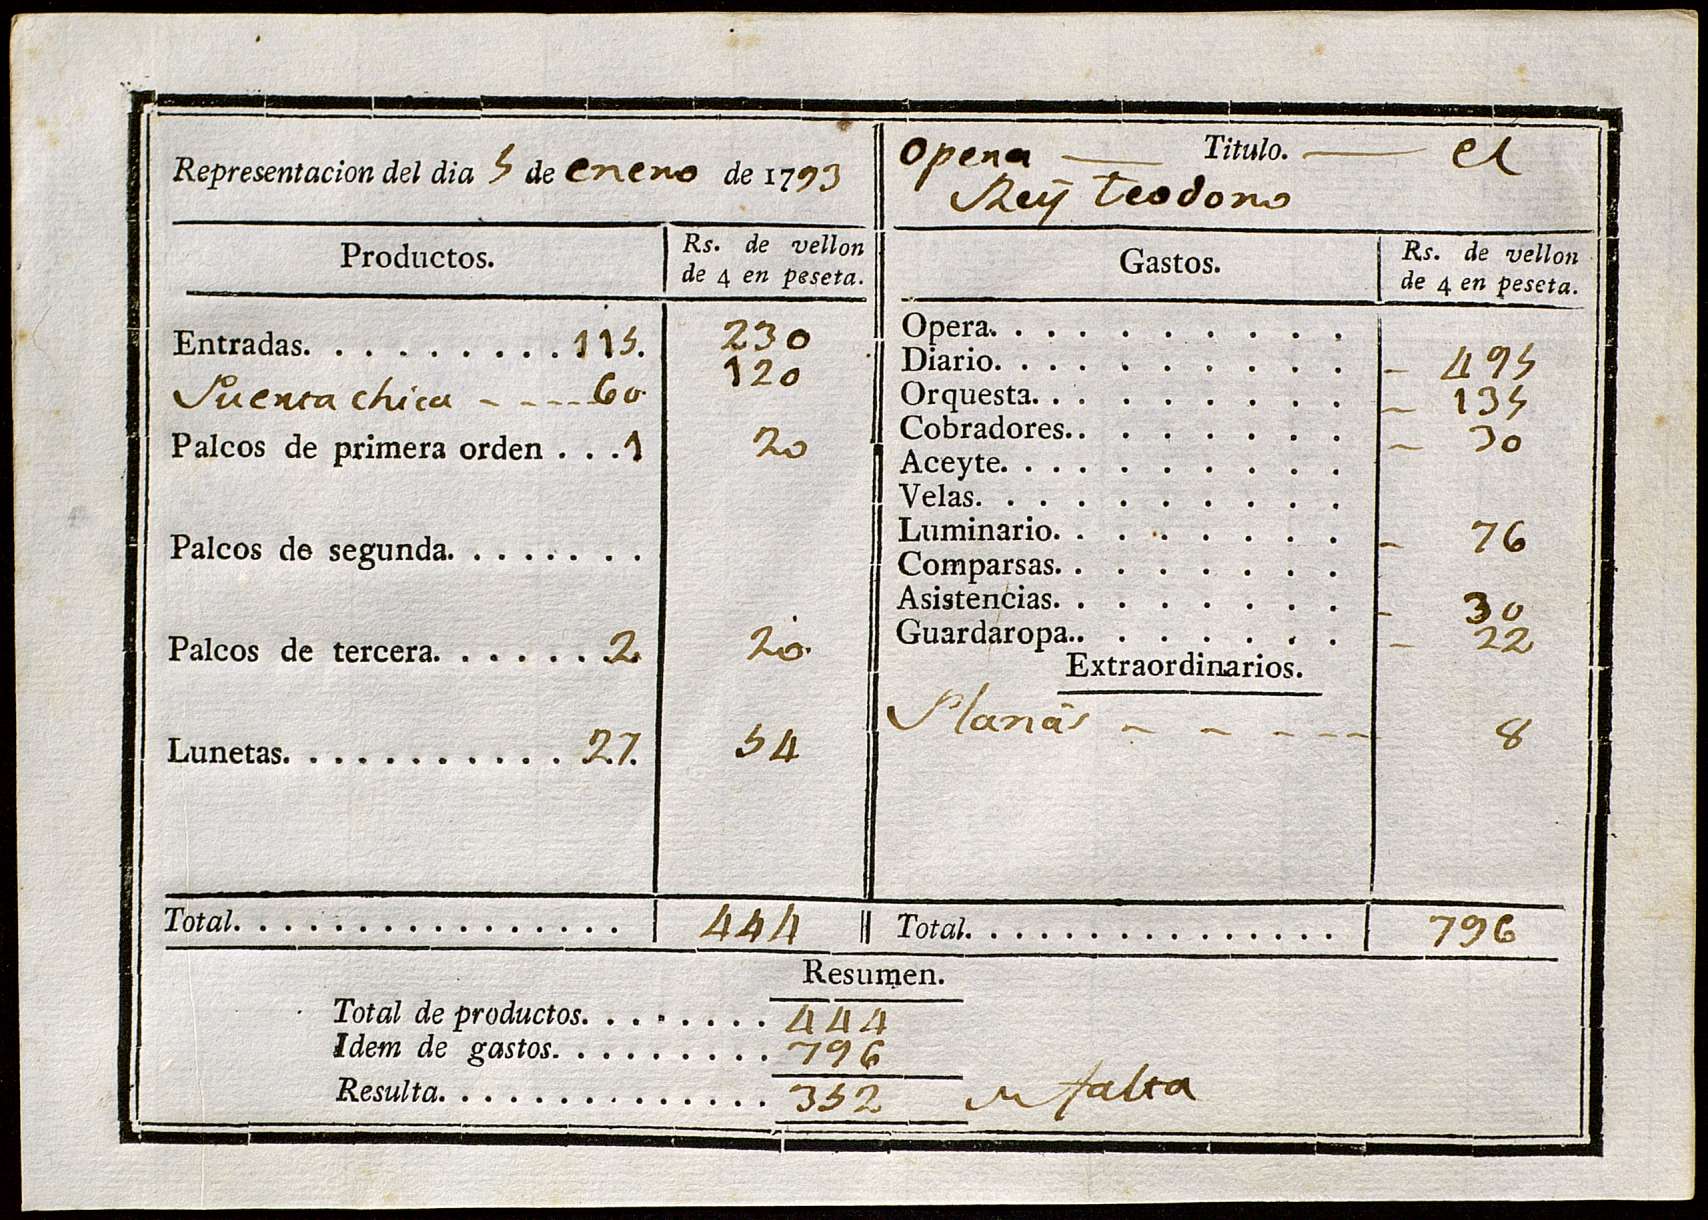 Representacion del dia 5 de enero de 1793
Productos.
Rs. de vellon
de 4 en peseta.
Entradas. . . . . . . . . . 115. 230
Puerta chica - - - - 60. 120
Palcos de primera orden . . . 1 20
Palcos de segunda. . . . . . . .
Palcos de tercera. . . . . . 2. 20.
Lunetas. . . . . . . . . . . 27. 54
Total. . . . . . . . . . . . . . . . 444
Opera — Titulo. — el
Rey Teodoro
Gastos.
Rs. de vellon
de 4 en peseta.
Opera. . . . . . . . . .
Diario. . . . . . . . . . - 495
Orquesta. . . . . . . . . - 135
Cobradores.. . . . . . . - 30
Aceyte. . . . . . . . . .
Velas. . . . . . . . . .
Luminario. . . . . . . . - 76
Comparsas. . . . . . . .
Asistencias. . . . . . . . - 30
Guardaropa.. . . . . . . - 22
Extraordinarios.
Planas - - - - - 8
Total. . . . . . . . . . . . . . . 796
Resumen.
Total de productos. . . . . . . . 444
Idem de gastos. . . . . . . . . . 796
Resulta. . . . . . . . . . . . . . 352 falta